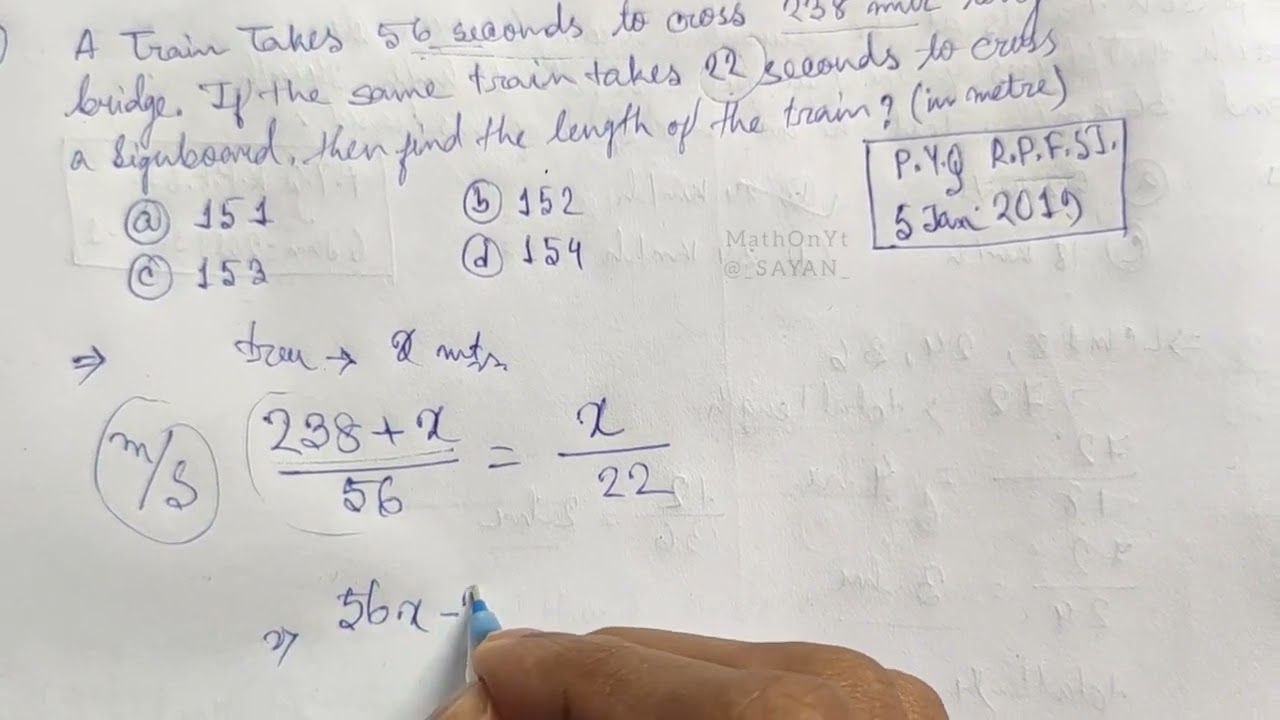 A Train Takes 56 seconds to cross 238 mtr long
bridge. If the same train takes 22 seconds to cross
a Signboard, then find the length of the train? (in metre)
P.Y.Q R.P.F.SI.
5 Jan 2019
ⓐ 151
ⓑ 152
ⓒ 153
ⓓ 154
MathOnYt
@_SAYAN_
⇒ → x mtr
m/s (238 + x)/56 = x/22
⇒ 56x -